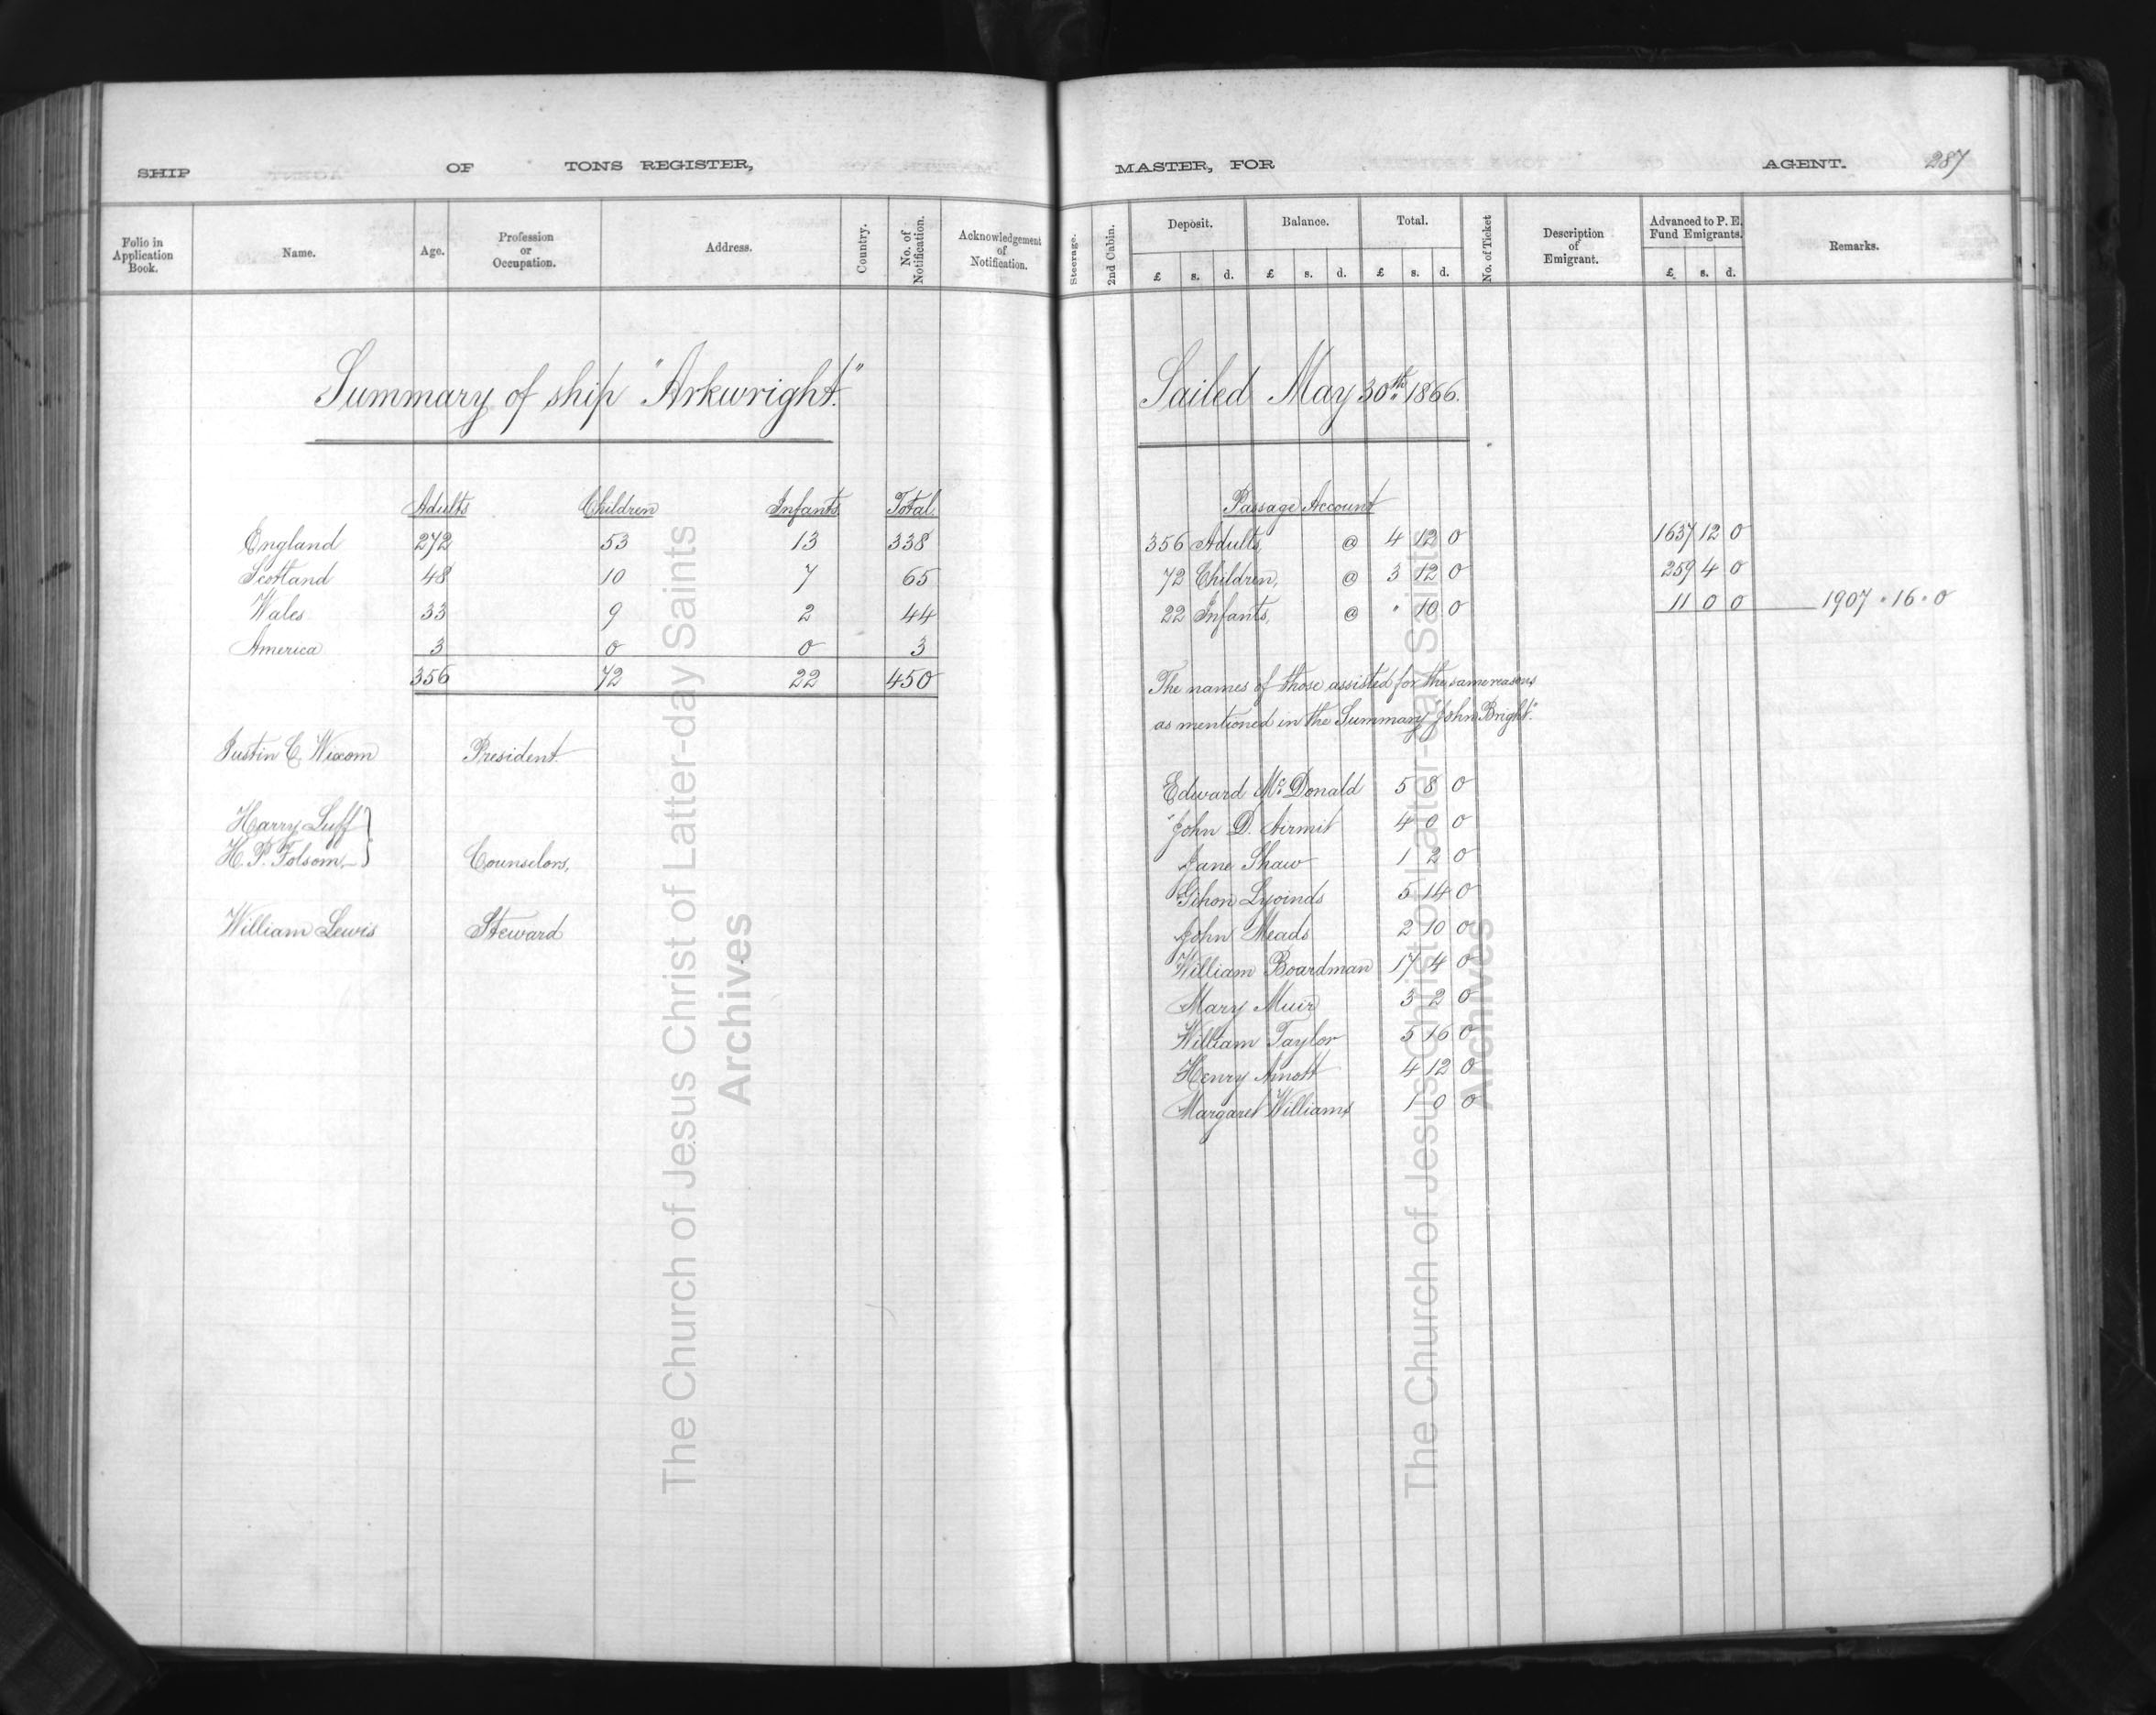 SHIP OF TONS REGISTER,
Folio in Application Book. Name. Age. Profession or Occupation. Address. Country. No. of Notification. Acknowledgement of Notification.
Summary of ship "Arkwright."
Adults Children Infants Total
England 272 53 13 338
Scotland 48 10 7 65
Wales 33 9 2 44
America 3 0 0 3
356 72 22 450
Justin C. Wixom President
Harry Luff
H. P. Folsom Counselors,
William Lewis Steward
The Church of Jesus Christ of Latter-day Saints
Archives
MASTER, FOR AGENT. 287
Steerage. 2nd Cabin. Deposit. Balance. Total. No. of Ticket Description of Emigrant. Advanced to P. E. Fund Emigrants. Remarks.
£ s. d. £ s. d. £ s. d. £ s. d.
Sailed May 30th 1866.
Passage Account
356 Adults, @ 4 12 0 1637 12 0
72 Children, @ 3 12 0 259 4 0
22 Infants, @ " 10 0 11 0 0 1907 " 16 " 0
The names of those assisted for the same reasons
as mentioned in the Summary "John Bright."
Edward McDonald 5 8 0
John D. 4 0 0
Jane Shaw 1 2 0
5 14 0
John Meads 2 10 0
William Boardman 17 4 0
Mary Muir 3 2 0
William Taylor 5 16 0
Henry Arnott 4 12 0
Margaret Williams 1 0 0
The Church of Jesus Christ of Latter-day Saints
Archives